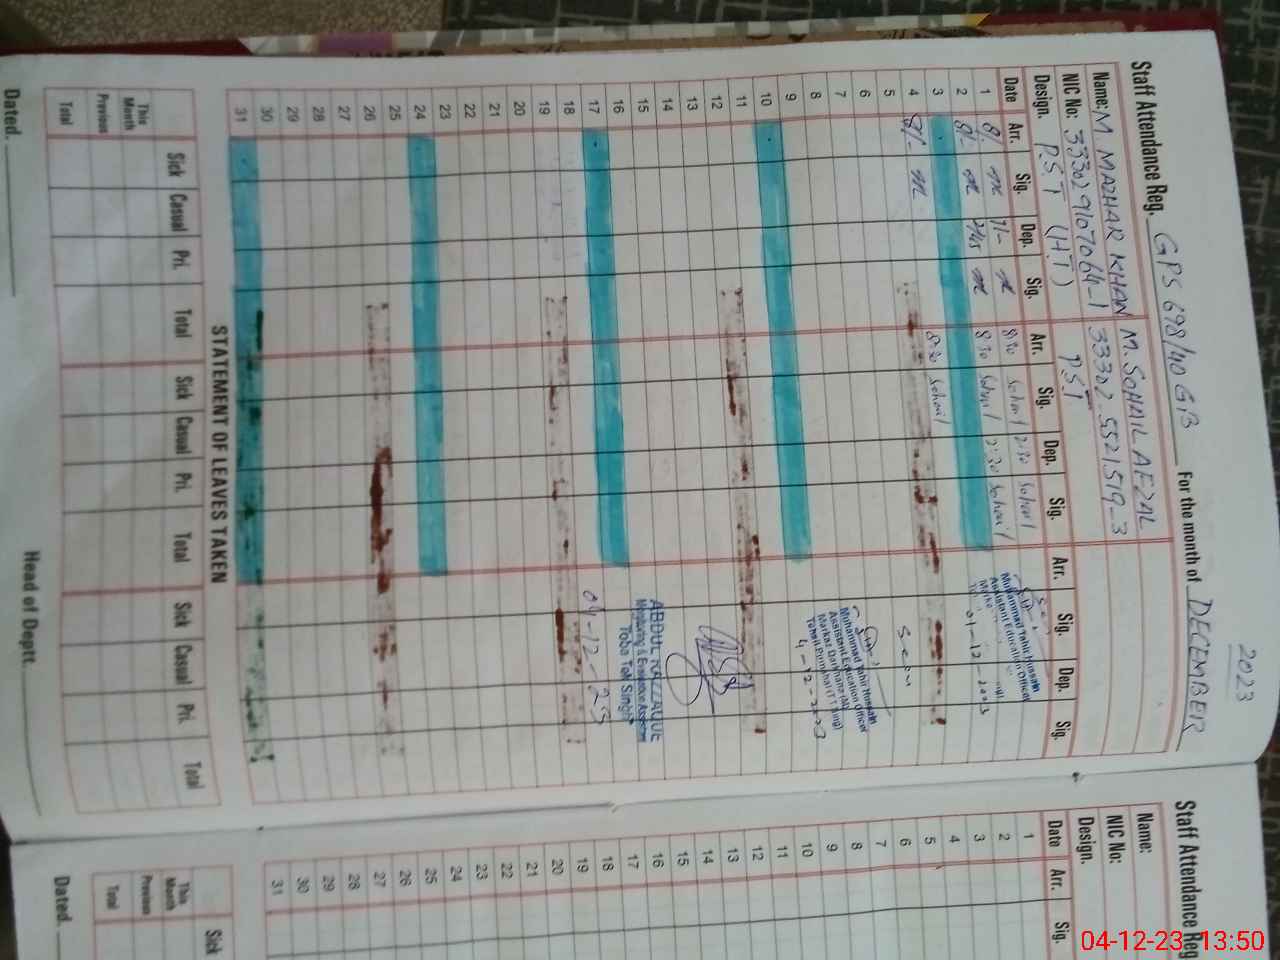 2023
Staff Attendance Reg. GPS 698/40 GB For the month of DECEMBER
Name: M MAZHAR KHAN M. SOHAIL AFZAL
NIC No: 333029107064-1 33302-5521519-3
Design. P.S.T (H.T) P.S.T
Date Arr. Sig. Dep. Sig. Arr. Sig. Dep. Sig. Arr. Sig. Dep. Sig.
1 8/- 1/- 8:30 Sohail 2:30 Sohail
2 8/- 8:30 Sohail 2:30 Sohail
Muhammad Tahir Hussain
Assistant Education Officer
01-12-2023
3
4 8/- 8:30 Sohail
5
Seen
6
7
Muhammad Tahir Hussain
Assistant Education Officer
4-12-2023
8
9
10
11
12
13
14
15
ABDUL RAZZAQUE
Monitoring & Evaluation Assistant
Toba Tek Singh
16
17
04-12-23
18
19
20
21
22
23
24
25
26
27
28
29
30
31
STATEMENT OF LEAVES TAKEN
Sick Casual Pri. Total Sick Casual Pri. Total Sick Casual Pri. Total
This Month
Previous
Total
Dated. Head of Deptt.
Staff Attendance Reg
Name:
NIC No:
Design.
Date Arr. Sig.
1
2
3
4
5
6
7
8
9
10
11
12
13
14
15
16
17
18
19
20
21
22
23
24
25
26
27
28
29
30
31
Sick
This Month
Previous
Total
Dated.
04-12-23 13:50